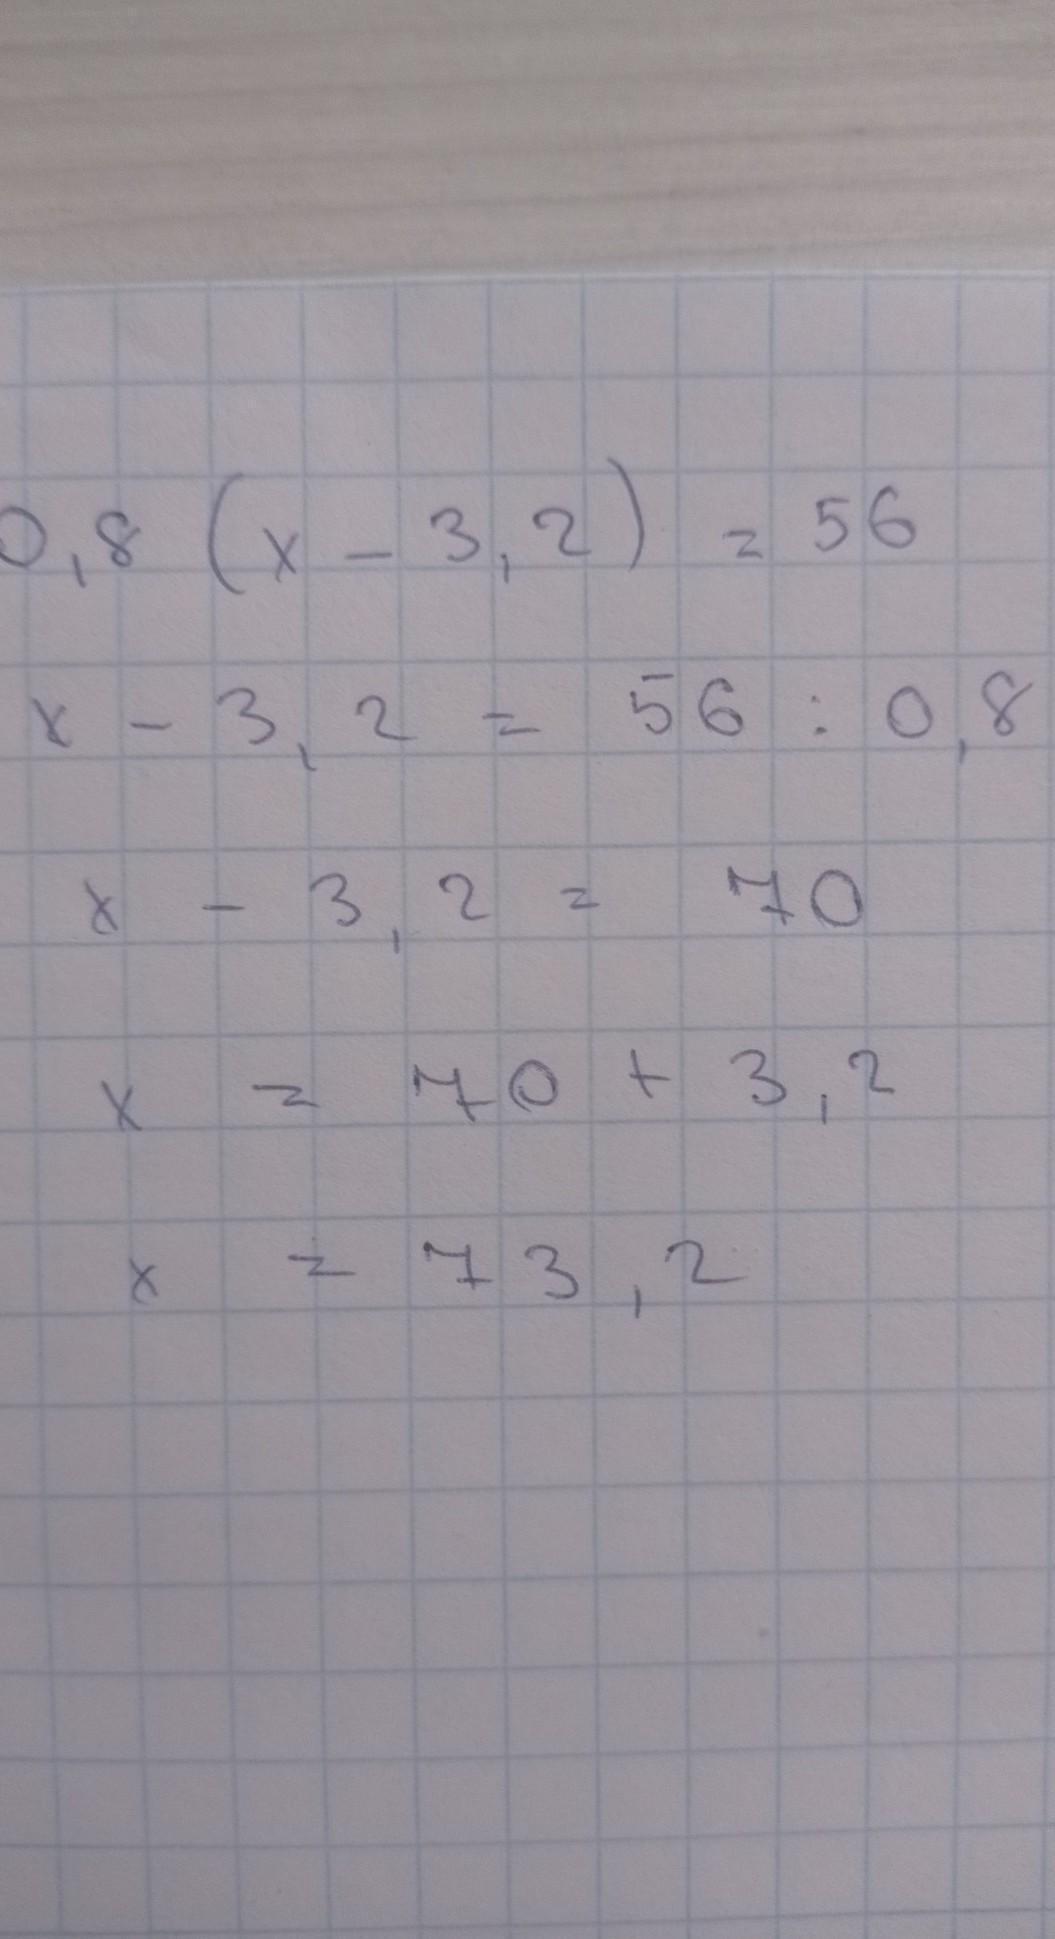 0,8 (x - 3,2) = 56
x - 3,2 = 56 : 0,8
x - 3,2 = 70
x = 70 + 3,2
x = 73,2